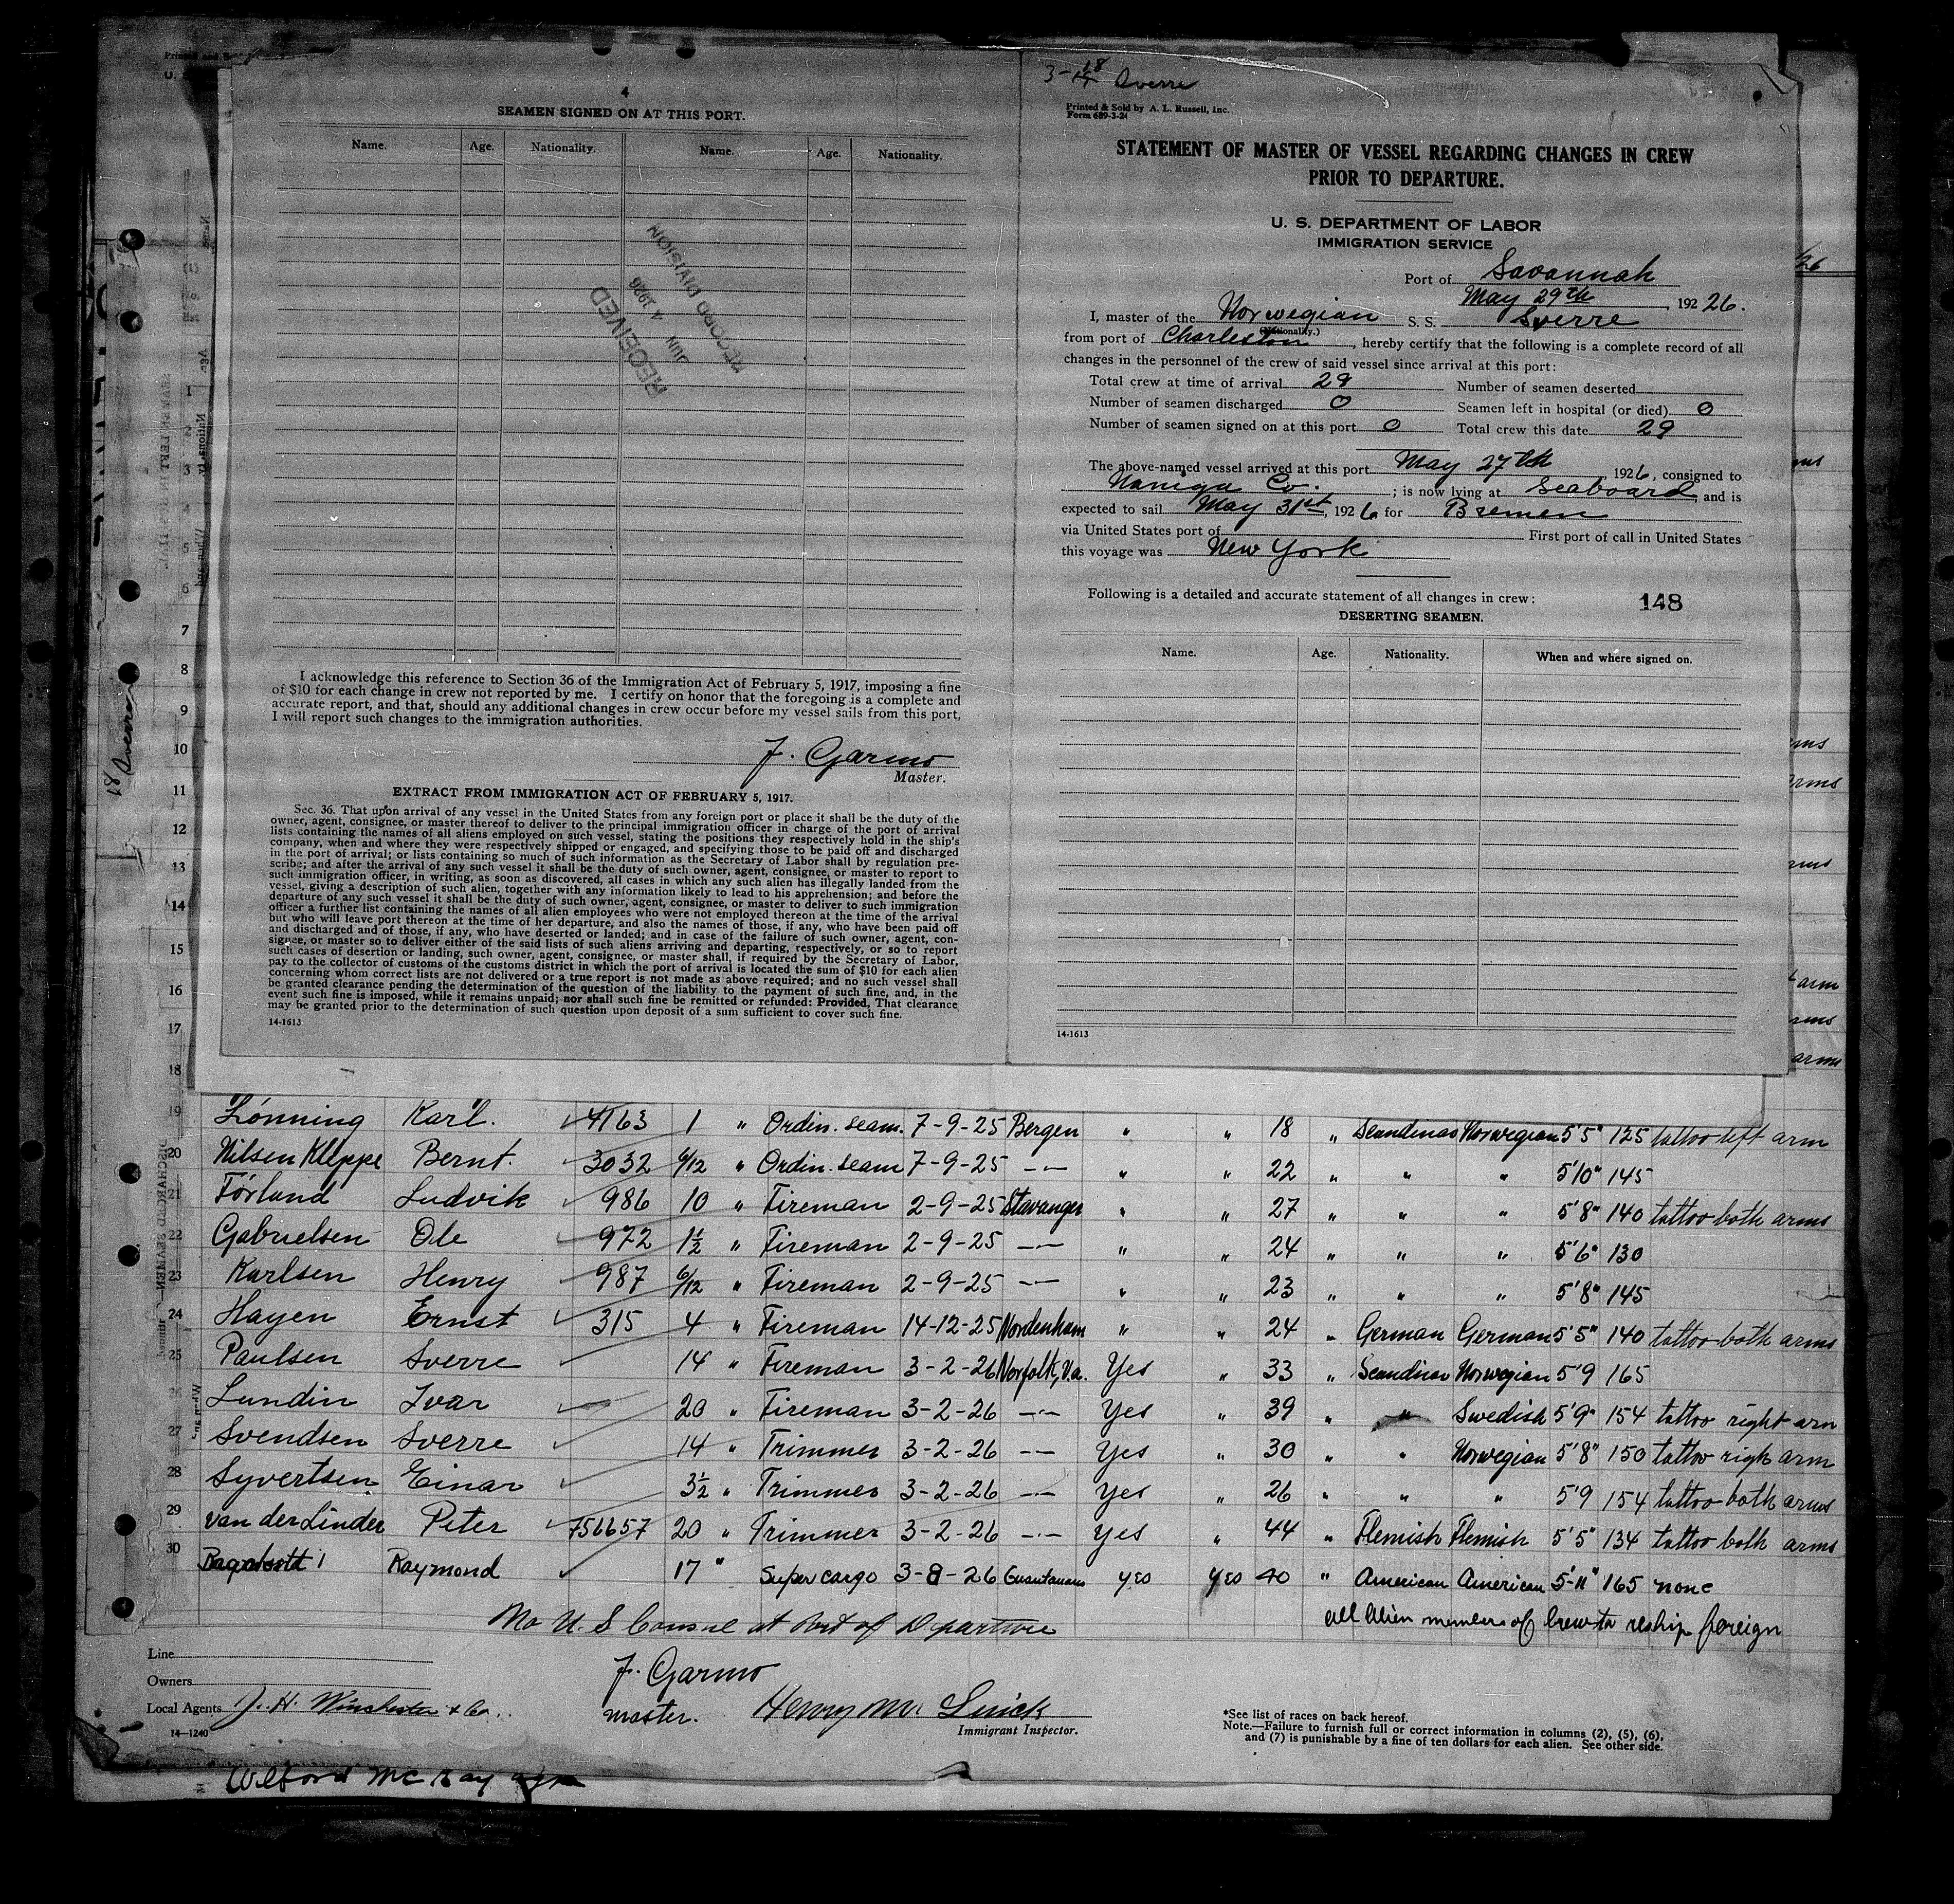 4
SEAMEN SIGNED ON AT THIS PORT.
Name. Age. Nationality. Name. Age. Nationality.
RECEIVED
JUN 4 1926
RECORD DIVISION
I acknowledge this reference to Section 36 of the Immigration Act of February 5, 1917, imposing a fine
of $10 for each change in crew not reported by me. I certify on honor that the foregoing is a complete and
accurate report, and that, should any additional changes in crew occur before my vessel sails from this port,
I will report such changes to the immigration authorities.
J. Garmo
Master.
EXTRACT FROM IMMIGRATION ACT OF FEBRUARY 5, 1917.
Sec. 36. That upon arrival of any vessel in the United States from any foreign port or place it shall be the duty of the
owner, agent, consignee, or master thereof to deliver to the principal immigration officer in charge of the port of arrival
lists containing the names of all aliens employed on such vessel, stating the positions they respectively hold in the ship's
company, when and where they were respectively shipped or engaged, and specifying those to be paid off and discharged
in the port of arrival; or lists containing so much of such information as the Secretary of Labor shall by regulation pre-
scribe; and after the arrival of any such vessel it shall be the duty of such owner, agent, consignee, or master to report to
such immigration officer, in writing, as soon as discovered, all cases in which any such alien has illegally landed from the
vessel, giving a description of such alien, together with any information likely to lead to his apprehension; and before the
departure of any such vessel it shall be the duty of such owner, agent, consignee, or master to deliver to such immigration
officer a further list containing the names of all alien employees who were not employed thereon at the time of the arrival
but who will leave port thereon at the time of her departure, and also the names of those, if any, who have been paid off
and discharged and of those, if any, who have deserted or landed; and in case of the failure of such owner, agent, con-
signee, or master so to deliver either of the said lists of such aliens arriving and departing, respectively, or so to report
such cases of desertion or landing, such owner, agent, consignee, or master shall, if required by the Secretary of Labor,
pay to the collector of customs of the customs district in which the port of arrival is located the sum of $10 for each alien
concerning whom correct lists are not delivered or a true report is not made as above required; and no such vessel shall
be granted clearance pending the determination of the question of the liability to the payment of such fine, and, in the
event such fine is imposed, while it remains unpaid; nor shall such fine be remitted or refunded: Provided, That clearance
may be granted prior to the determination of such question upon deposit of a sum sufficient to cover such fine.
14-1613
3-18 Sverre
Printed & Sold by A. L. Russell, Inc.
Form 689-3-24
STATEMENT OF MASTER OF VESSEL REGARDING CHANGES IN CREW
PRIOR TO DEPARTURE.
U. S. DEPARTMENT OF LABOR
IMMIGRATION SERVICE
Port of Savannah
May 29th, 192 26.
I, master of the Norwegian S. S. Sverre
(Nationality.)
from port of Charleston, hereby certify that the following is a complete record of all
changes in the personnel of the crew of said vessel since arrival at this port:
Total crew at time of arrival 29 Number of seamen deserted
Number of seamen discharged 0 Seamen left in hospital (or died) 0
Number of seamen signed on at this port 0 Total crew this date 29
The above-named vessel arrived at this port May 27th, 1926, consigned to
Co. ; is now lying at Seaboard, and is
expected to sail May 31st, 192 6 for Bremen
via United States port of First port of call in United States
this voyage was New York
Following is a detailed and accurate statement of all changes in crew: 148
DESERTING SEAMEN.
Name. Age. Nationality. When and where signed on.
14-1613
1
3
4
5
6
7
8
9
10
11
12
13
14
15
16
17
18
18 Sverre
19 Lønning Karl. 4163 1 " Ordin. seam. 7-9-25 Bergen " " 18 " Scandinav Norwegian 5'5" 125 tattoo left arm
20 Nilsen Kleppe Bernt. 3032 6/12 " Ordin. seam 7-9-25 -"- " " 22 " " " 5'10" 145
21 Førland Ludvik 986 10 " Fireman 2-9-25 Stavanger " " 27 " " " 5'8" 140 tattoo both arms
22 Gabrielsen Ole 972 1½ " Fireman 2-9-25 -"- " " 24 " " " 5'6" 130
23 Karlsen Henry 987 6/12 " Fireman 2-9-25 -"- " " 23 " " " 5'8" 145
24 Hayen Ernst 315 4 " Fireman 14-12-25 Nordenham " " 24 " German German 5'5" 140 tattoo both arms
25 Paulsen Sverre 14 " Fireman 3-2-26 Norfolk, Va. Yes " 33 " Scandinav Norwegian 5'9 165
26 Lundin Ivar 20 " Fireman 3-2-26 -"- Yes " 39 " " Swedish 5'9" 154 tattoo right arm
27 Svendsen Sverre 14 " Trimmer 3-2-26 -"- Yes " 30 " " Norwegian 5'8" 150 tattoo righ arm
28 Syvertsen Einar 3½ " Trimmer 3-2-26 -"- Yes " 26 " " " 5'9 154 tattoo both arms
29 van der Linder Peter 756657 20 " Trimmer 3-2-26 -"- Yes " 44 " Flemish Flemish 5'5" 134 tattoo both arms
30 Raymond 17 " Super cargo 3-8-26 Guantanamo yes yes 40 " American American 5'-11" 165 none
No U. S Consul at Port of Departure
all Alien members of Crew to reship foreign
Line
Owners
Local Agents J. H. Winchester & Co.
14-1240
J. Garmo
master.
Henry M.
Immigrant Inspector.
*See list of races on back hereof.
Note.—Failure to furnish full or correct information in columns (2), (5), (6),
and (7) is punishable by a fine of ten dollars for each alien. See other side.